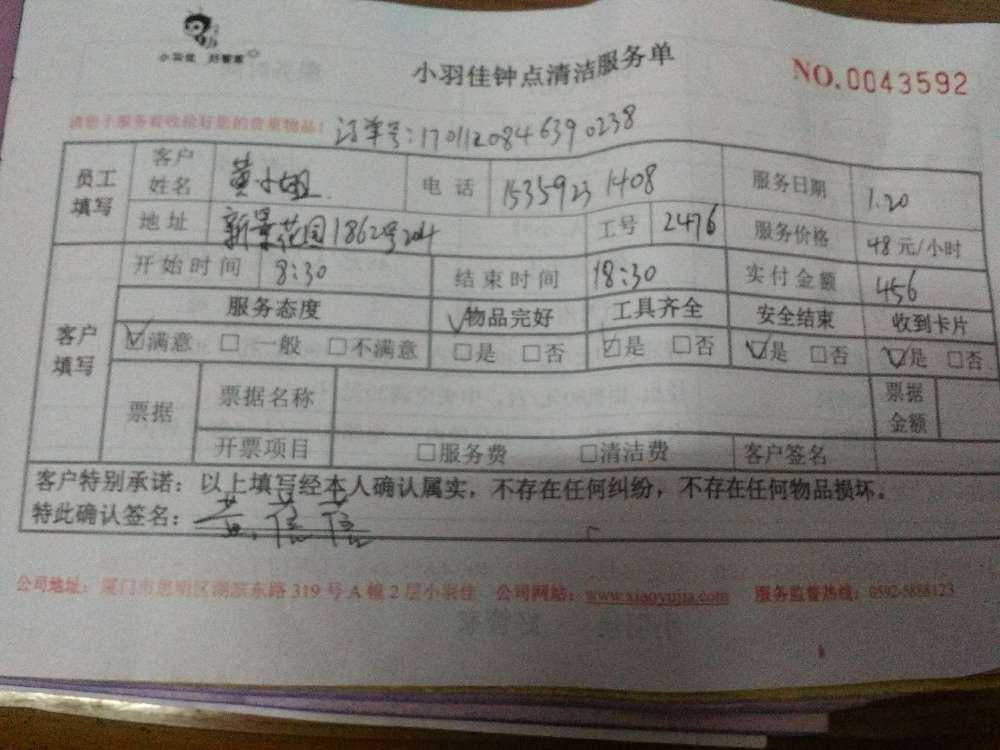 小羽佳 好管家
小羽佳钟点清洁服务单
NO.0043592
请您于服务前收拾好您的贵重物品！ 订单号：170112084639 0238
员工填写 客户姓名 黄小姐 电话 15359231408 服务日期 1.20
地址 新景花园1862号204 工号 2476 服务价格 48元/小时
客户填写 开始时间 8:30 结束时间 18:30 实付金额 456
服务态度 物品完好 工具齐全 安全结束 收到卡片
☑满意 □一般 □不满意 □是 □否 ☑是 □否 ☑是 □否 ☑是 □否
票据 票据名称 票据金额
开票项目 □服务费 □清洁费 客户签名
客户特别承诺：以上填写经本人确认属实，不存在任何纠纷，不存在任何物品损坏。
特此确认签名：
公司地址：厦门市思明区湖滨东路319号A幢2层小羽佳 公司网站：www.xiaoyujia.com 服务监督热线：0592-5888123